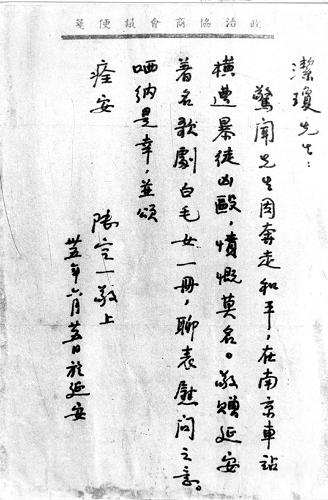 政治協商會議便箋
潔瓊先生：
驚聞先生因奔走和平，在南京車站
橫遭暴徒凶毆，憤慨莫名。敬贈延安
著名歌劇白毛女一冊，聊表慰问之意。
哂納是幸，並頌
痊安
陸定一敬上
卅五年六月廿五日於延安